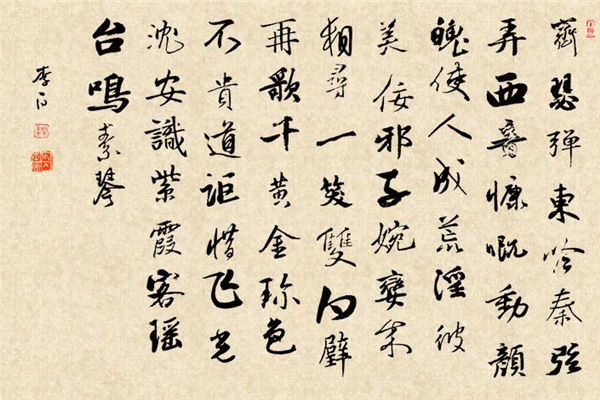 齊瑟弹東吟秦弦
弄西音慷慨動顔
魄使人成荒淫彼
美佞邪子婉孌来
相尋一笑雙白璧
再歌千黄金珍色
不貴道詎惜飞光
沈安識紫霞客瑶
台鳴素琴
李白